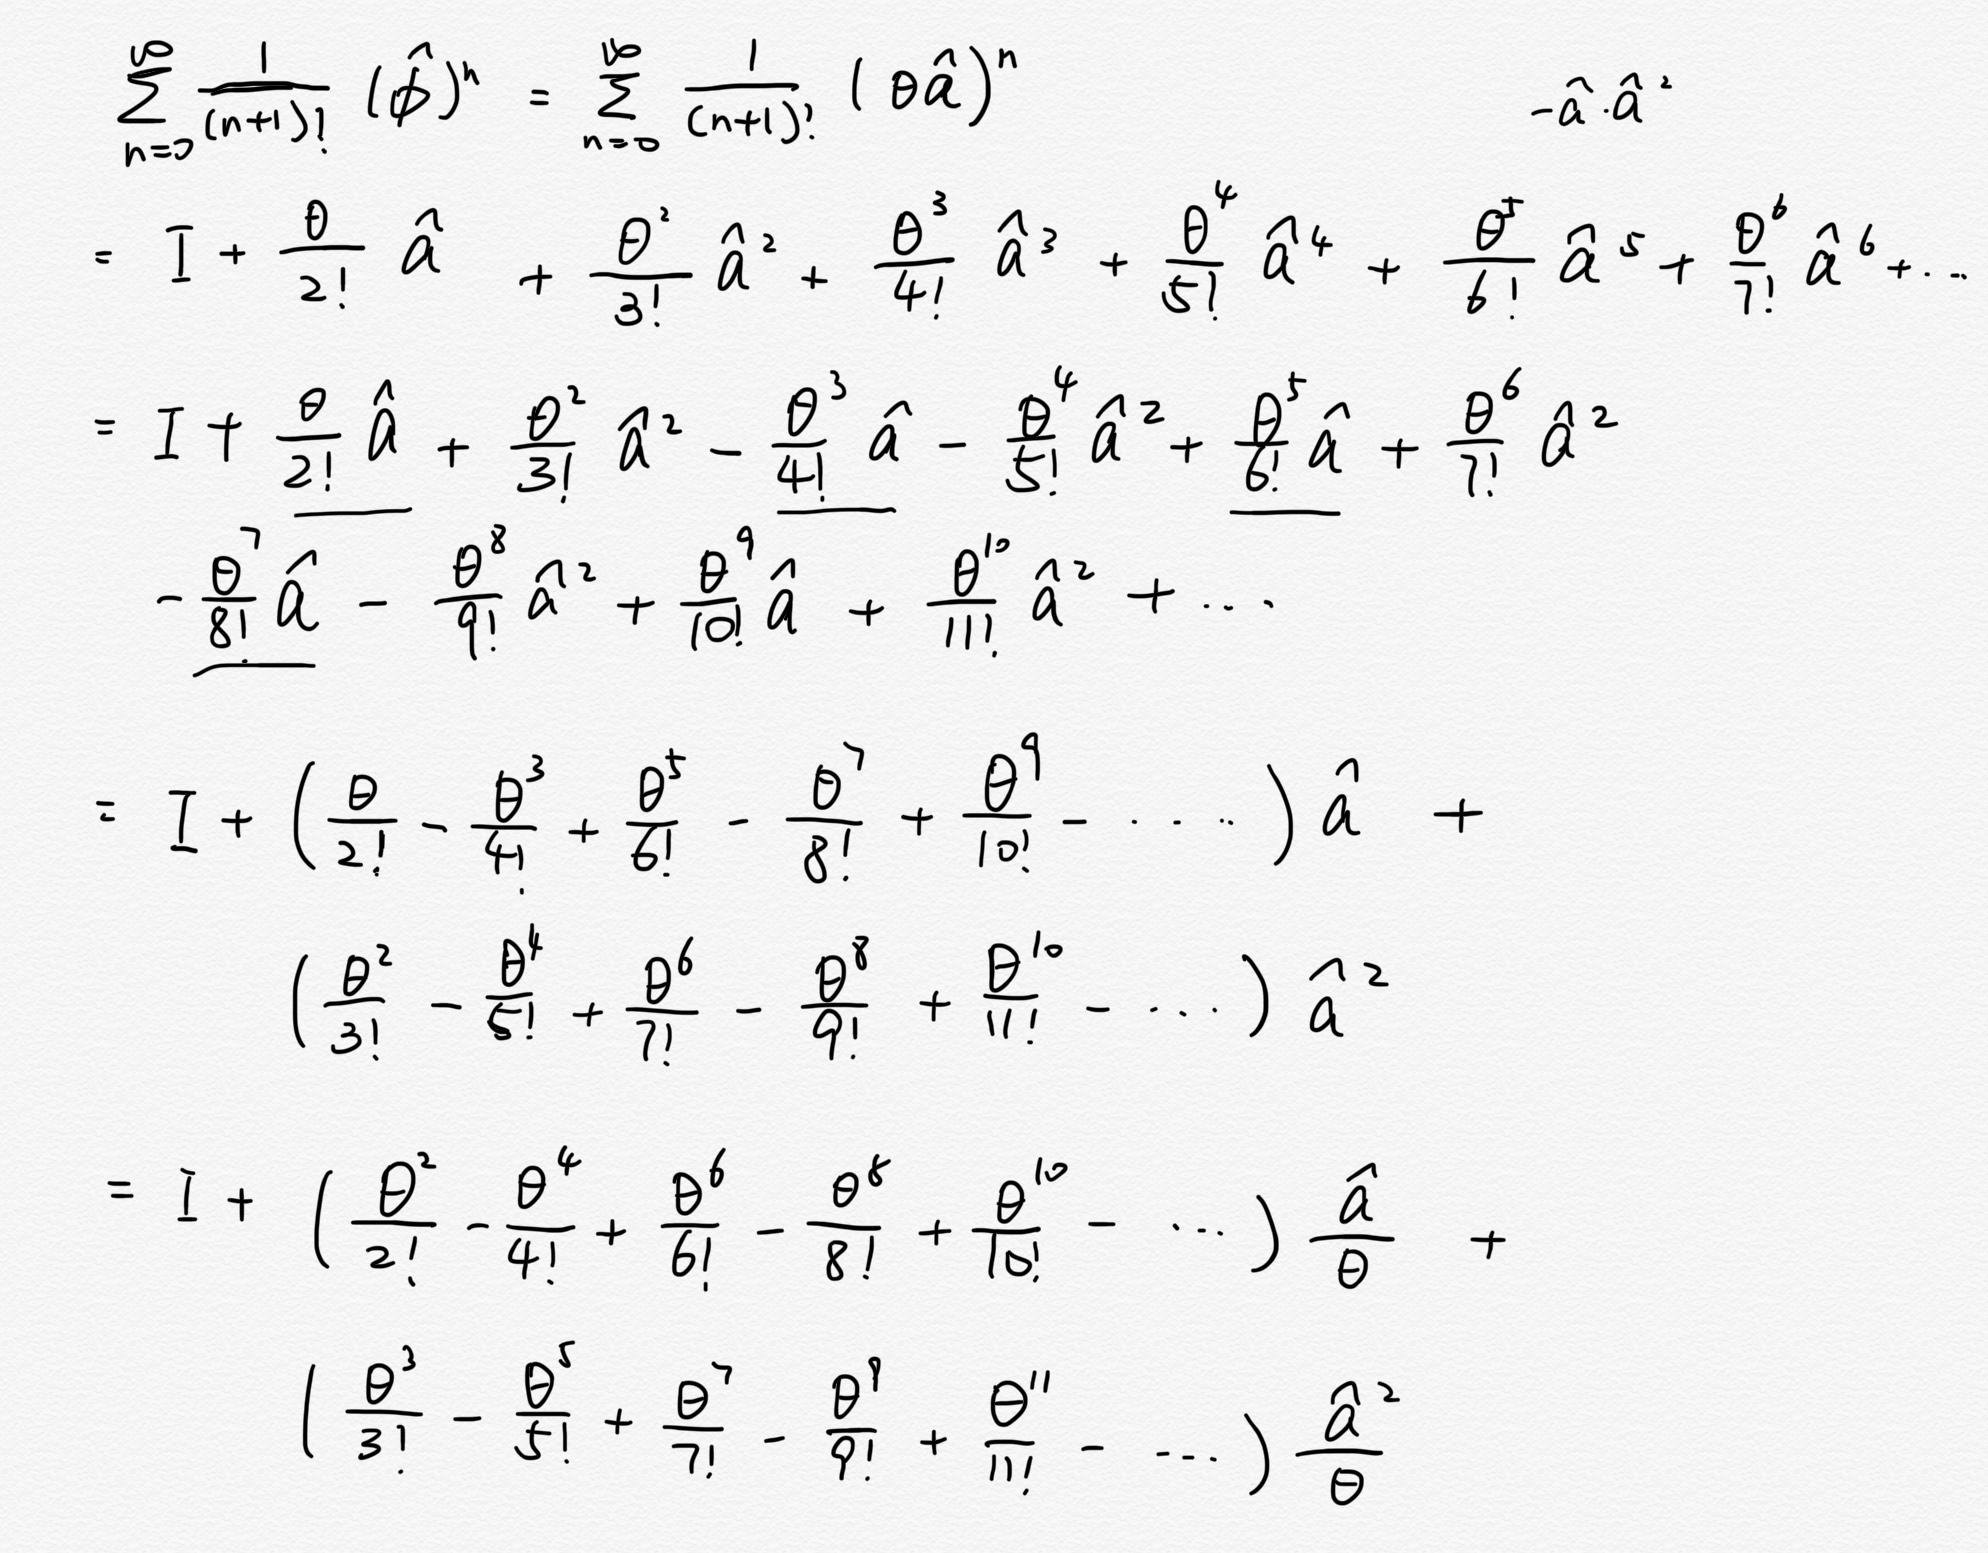 $\sum_{n=0}^{\infty} \frac{1}{(n+1)!} (\hat{\phi})^n = \sum_{n=0}^{\infty} \frac{1}{(n+1)!} (\theta \hat{a})^n$
$-\hat{a} \cdot \hat{a}^2$
$= I + \frac{\theta}{2!} \hat{a} + \frac{\theta^2}{3!} \hat{a}^2 + \frac{\theta^3}{4!} \hat{a}^3 + \frac{\theta^4}{5!} \hat{a}^4 + \frac{\theta^5}{6!} \hat{a}^5 + \frac{\theta^6}{7!} \hat{a}^6 + \cdots$
$= I + \frac{\theta}{2!} \hat{a} + \frac{\theta^2}{3!} \hat{a}^2 - \frac{\theta^3}{4!} \hat{a} - \frac{\theta^4}{5!} \hat{a}^2 + \frac{\theta^5}{6!} \hat{a} + \frac{\theta^6}{7!} \hat{a}^2$
$- \frac{\theta^7}{8!} \hat{a} - \frac{\theta^8}{9!} \hat{a}^2 + \frac{\theta^9}{10!} \hat{a} + \frac{\theta^{10}}{11!} \hat{a}^2 + \cdots$
$= I + \left( \frac{\theta}{2!} - \frac{\theta^3}{4!} + \frac{\theta^5}{6!} - \frac{\theta^7}{8!} + \frac{\theta^9}{10!} - \cdots \right) \hat{a} +$
$\left( \frac{\theta^2}{3!} - \frac{\theta^4}{5!} + \frac{\theta^6}{7!} - \frac{\theta^8}{9!} + \frac{\theta^{10}}{11!} - \cdots \right) \hat{a}^2$
$= I + \left( \frac{\theta^2}{2!} - \frac{\theta^4}{4!} + \frac{\theta^6}{6!} - \frac{\theta^8}{8!} + \frac{\theta^{10}}{10!} - \cdots \right) \frac{\hat{a}}{\theta} +$
$\left( \frac{\theta^3}{3!} - \frac{\theta^5}{5!} + \frac{\theta^7}{7!} - \frac{\theta^9}{9!} + \frac{\theta^{11}}{11!} - \cdots \right) \frac{\hat{a}^2}{\theta}$